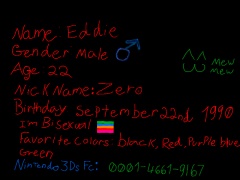 Name Eddie
Gender Male
Age 22
Nick Name: Zero
mew
mew
Birthday September 22nd, 1990
I'm Bisexual
Favorite colors: black, Red, Purple blue
Green
Nintendo 3Ds Fc: 0001-4661-9167